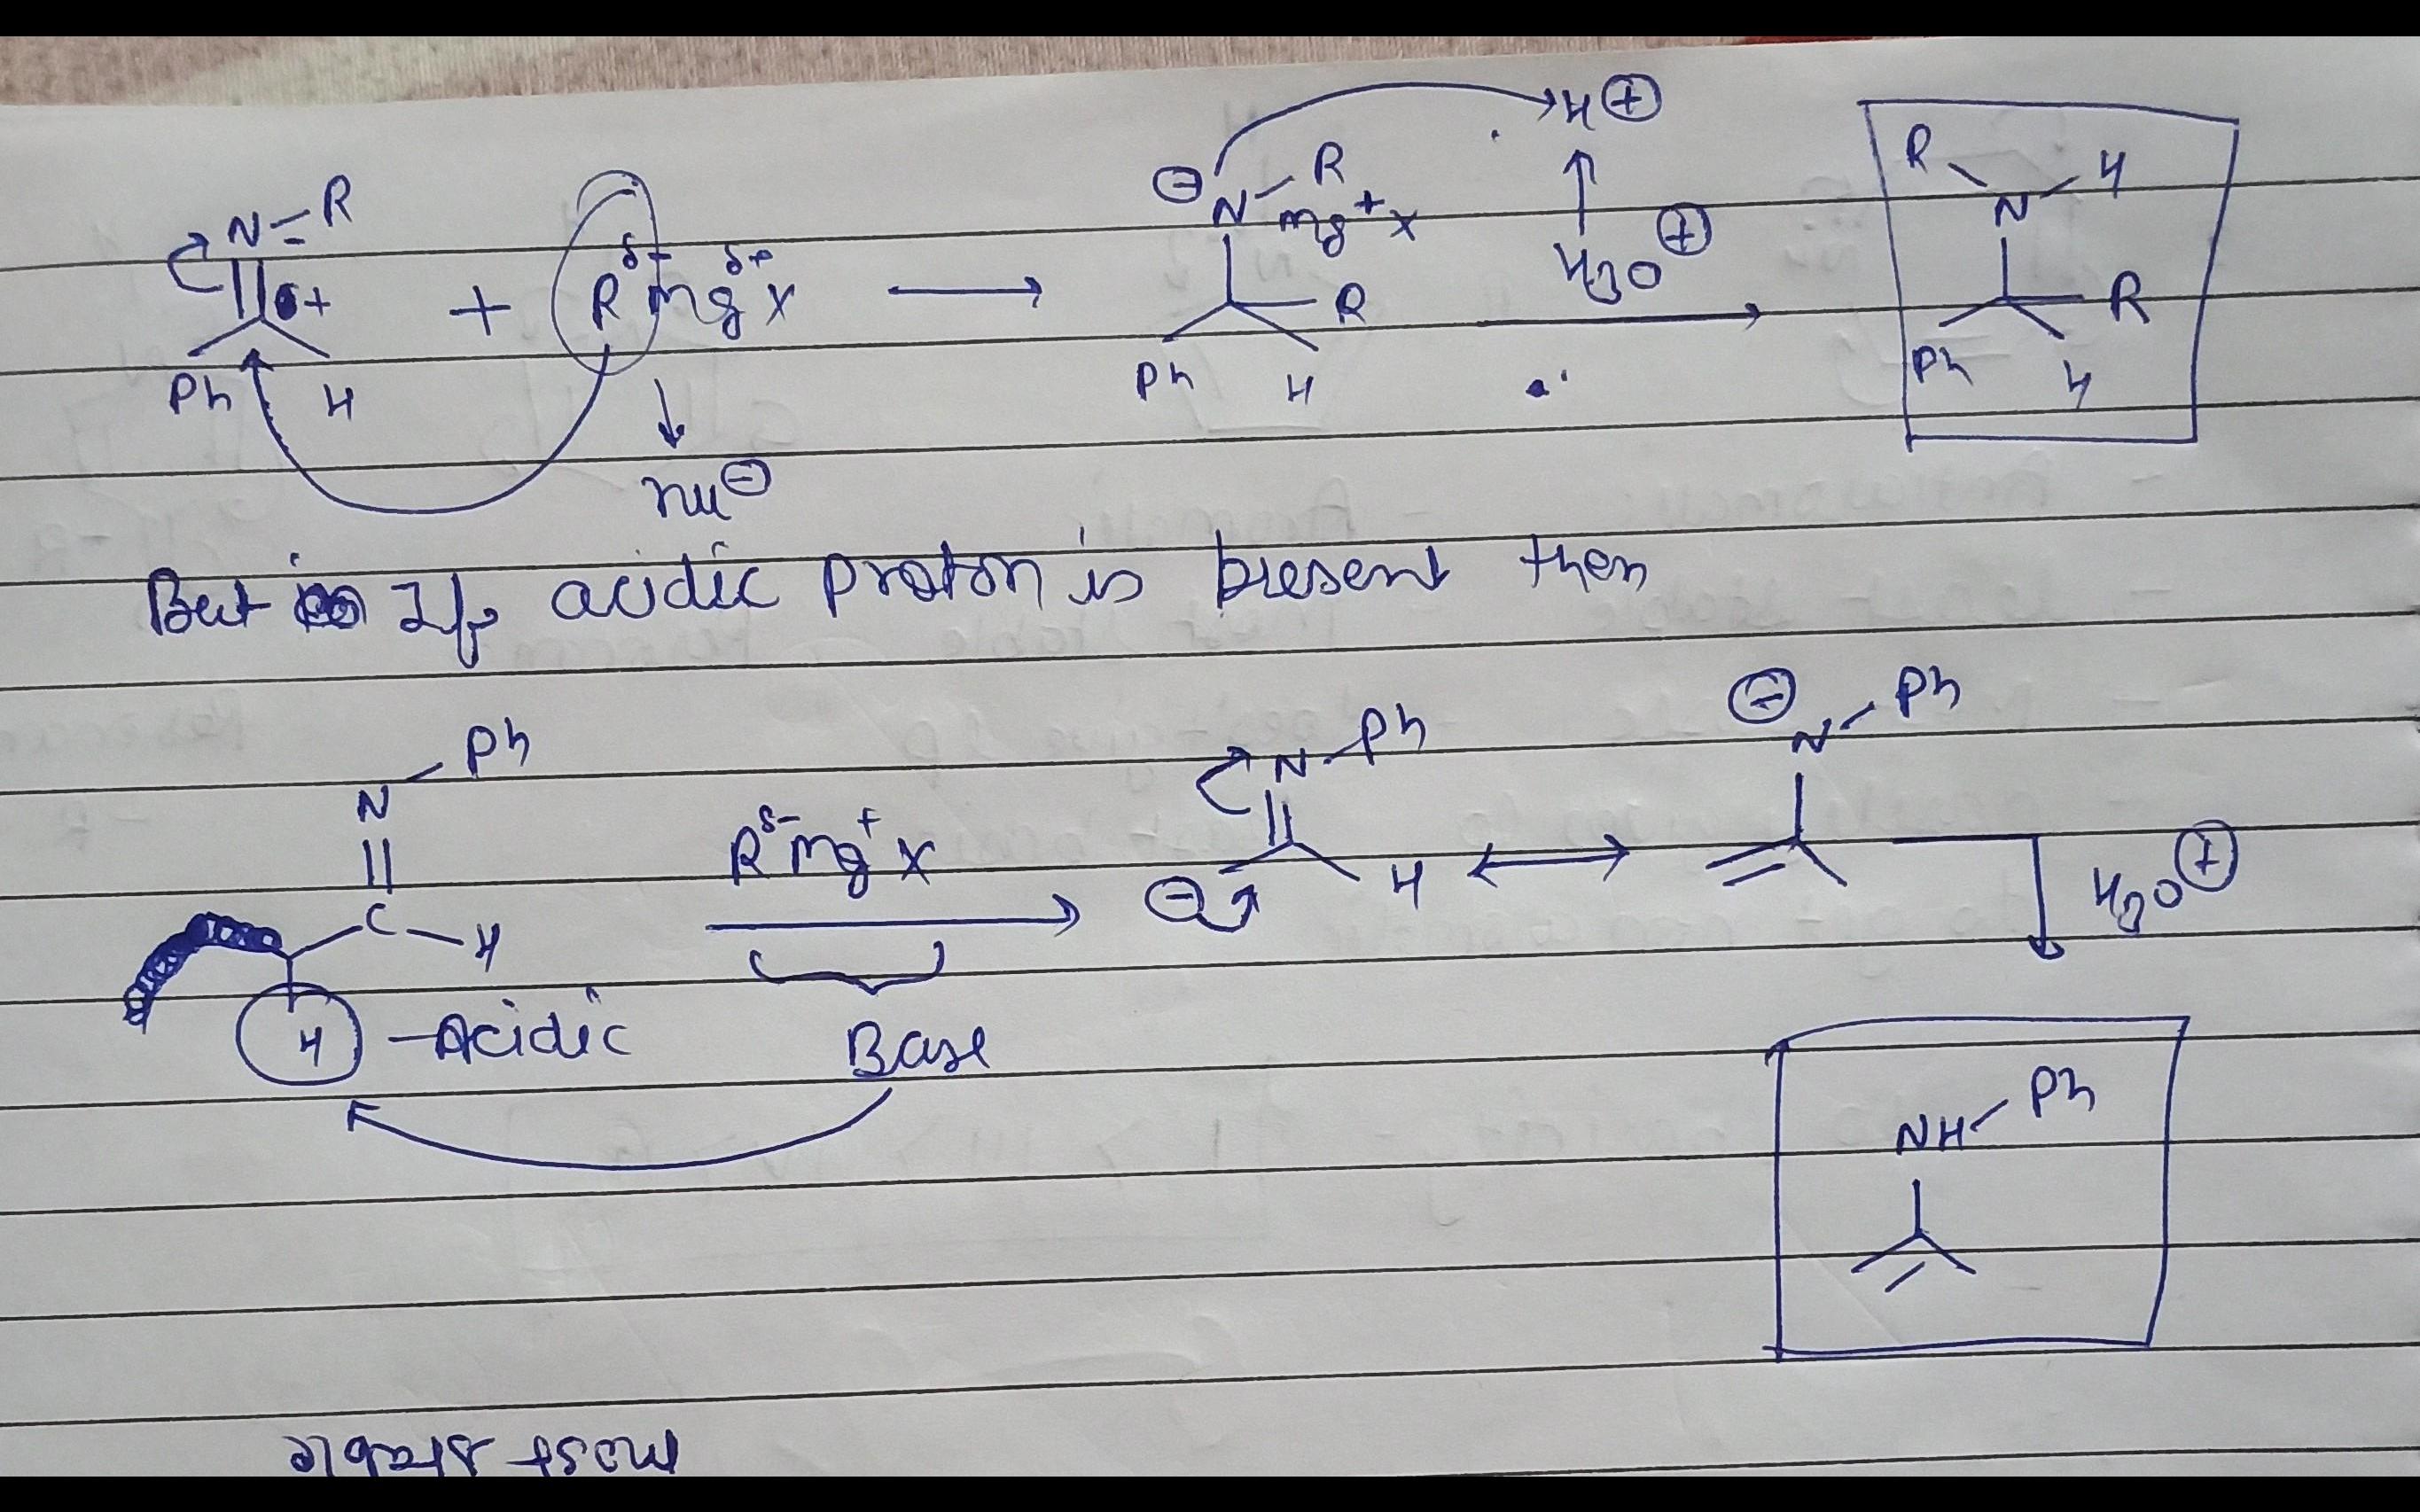 N=R
Ph H δ+ + Rδ- Mgδ+ X → ⊖ N-R Mg+ X
Ph H R
H⊕
H3O⊕
R N H
Ph R H
nu⊖
But If acidic proton is present then
N-Ph
C-H
H -Acidic
Rδ- Mg+ X
Base
N-Ph
⊖ H ↔ ⊖ N-Ph
H3O⊕
NH-Ph
most stable